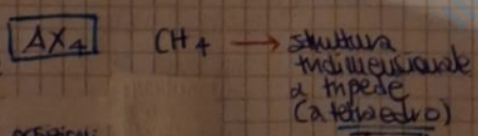 AX4 CH4 → struttura
tridimensionale
a tripede
(a tetraedro)